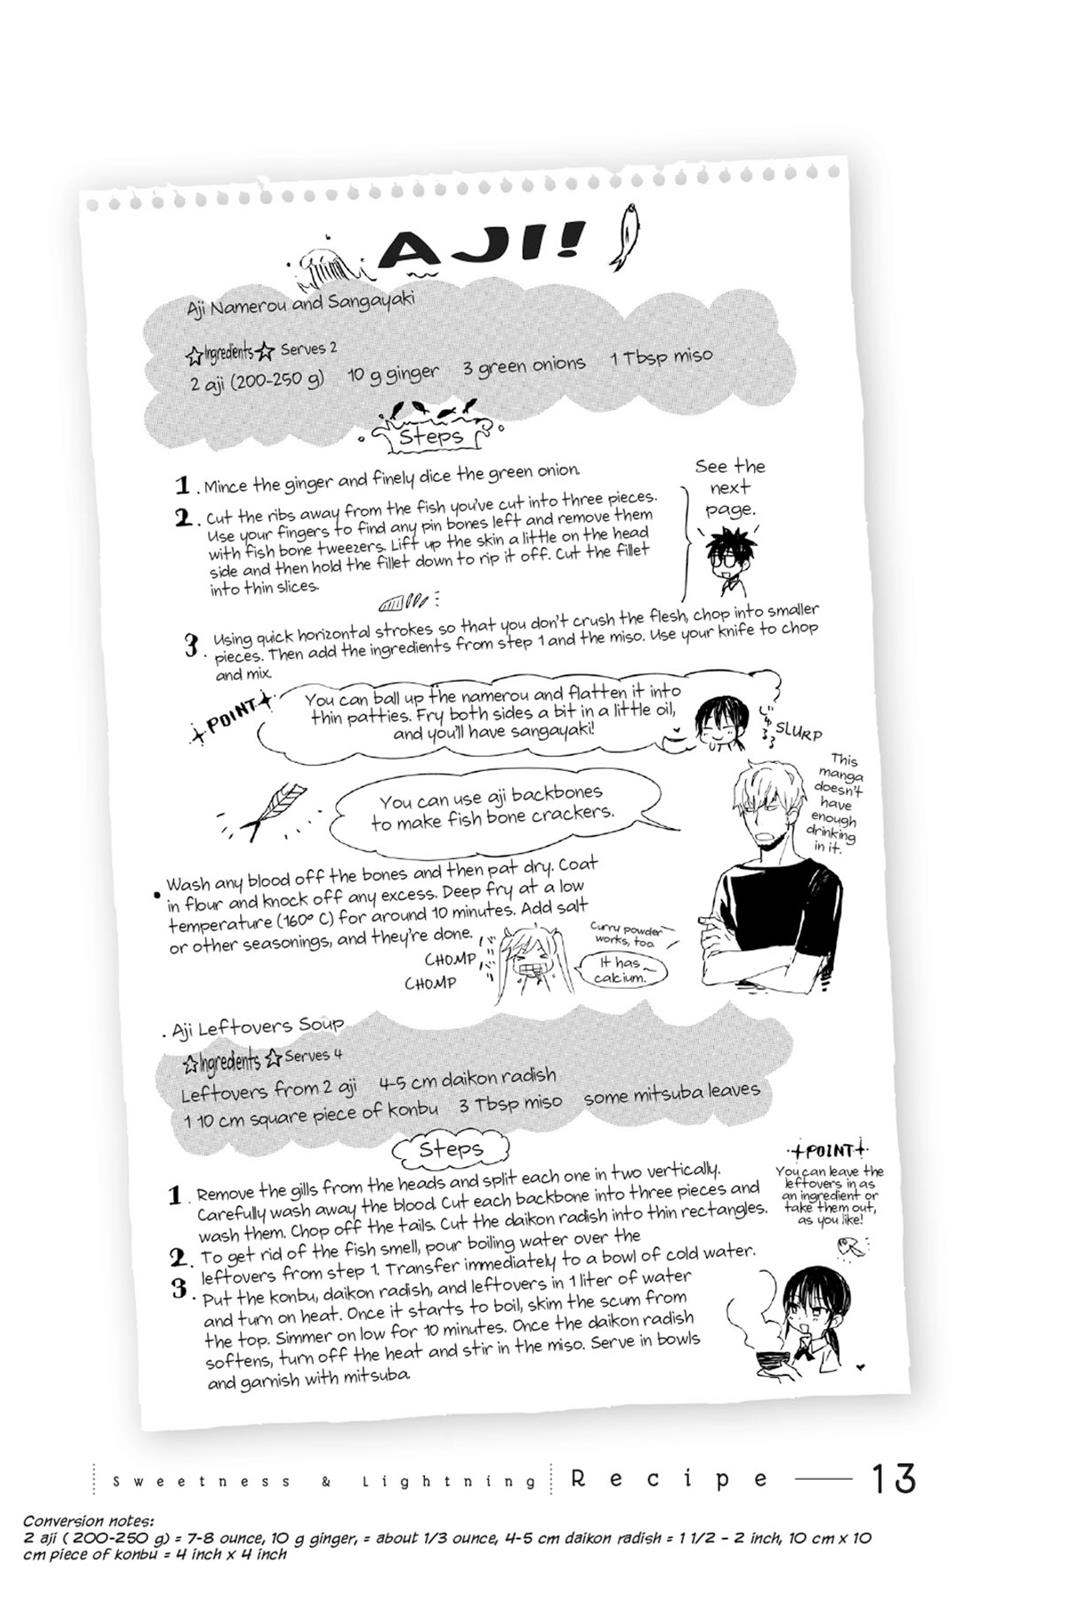 AJI!
Aji Namerou and Sangayaki
☆Ingredients☆ Serves 2
2 aji (200-250 g) 10 g ginger 3 green onions 1 Tbsp miso
Steps
1. Mince the ginger and finely dice the green onion.
2. Cut the ribs away from the fish you've cut into three pieces.
Use your fingers to find any pin bones left and remove them
with fish bone tweezers. Lift up the skin a little on the head
side and then hold the fillet down to rip it off. Cut the fillet
into thin slices.
See the
next
page.
3. Using quick horizontal strokes so that you don't crush the flesh, chop into smaller
pieces. Then add the ingredients from step 1 and the miso. Use your knife to chop
and mix.
POINT
You can ball up the namerou and flatten it into
thin patties. Fry both sides a bit in a little oil,
and you'll have sangayaki!
SLURP
This
manga
doesn't
have
enough
drinking
in it.
You can use aji backbones
to make fish bone crackers.
• Wash any blood off the bones and then pat dry. Coat
in flour and knock off any excess. Deep fry at a low
temperature (160° C) for around 10 minutes. Add salt
or other seasonings, and they're done.
CHOMP
CHOMP
Curry powder
works, too.
It has
calcium.
. Aji Leftovers Soup
☆Ingredients ☆ Serves 4
Leftovers from 2 aji 4-5 cm daikon radish
1 10 cm square piece of konbu 3 Tbsp miso some mitsuba leaves
Steps
1. Remove the gills from the heads and split each one in two vertically.
Carefully wash away the blood. Cut each backbone into three pieces and
wash them. Chop off the tails. Cut the daikon radish into thin rectangles.
2. To get rid of the fish smell, pour boiling water over the
leftovers from step 1. Transfer immediately to a bowl of cold water.
3. Put the konbu, daikon radish, and leftovers in 1 liter of water
and turn on heat. Once it starts to boil, skim the scum from
the top. Simmer on low for 10 minutes. Once the daikon radish
softens, turn off the heat and stir in the miso. Serve in bowls
and garnish with mitsuba.
POINT
You can leave the
leftovers in as
an ingredient or
take them out,
as you like!
Sweetness & Lightning Recipe — 13
Conversion notes:
2 aji ( 200-250 g) = 7-8 ounce, 10 g ginger, = about 1/3 ounce, 4-5 cm daikon radish = 1 1/2 - 2 inch, 10 cm x 10
cm piece of konbu = 4 inch x 4 inch